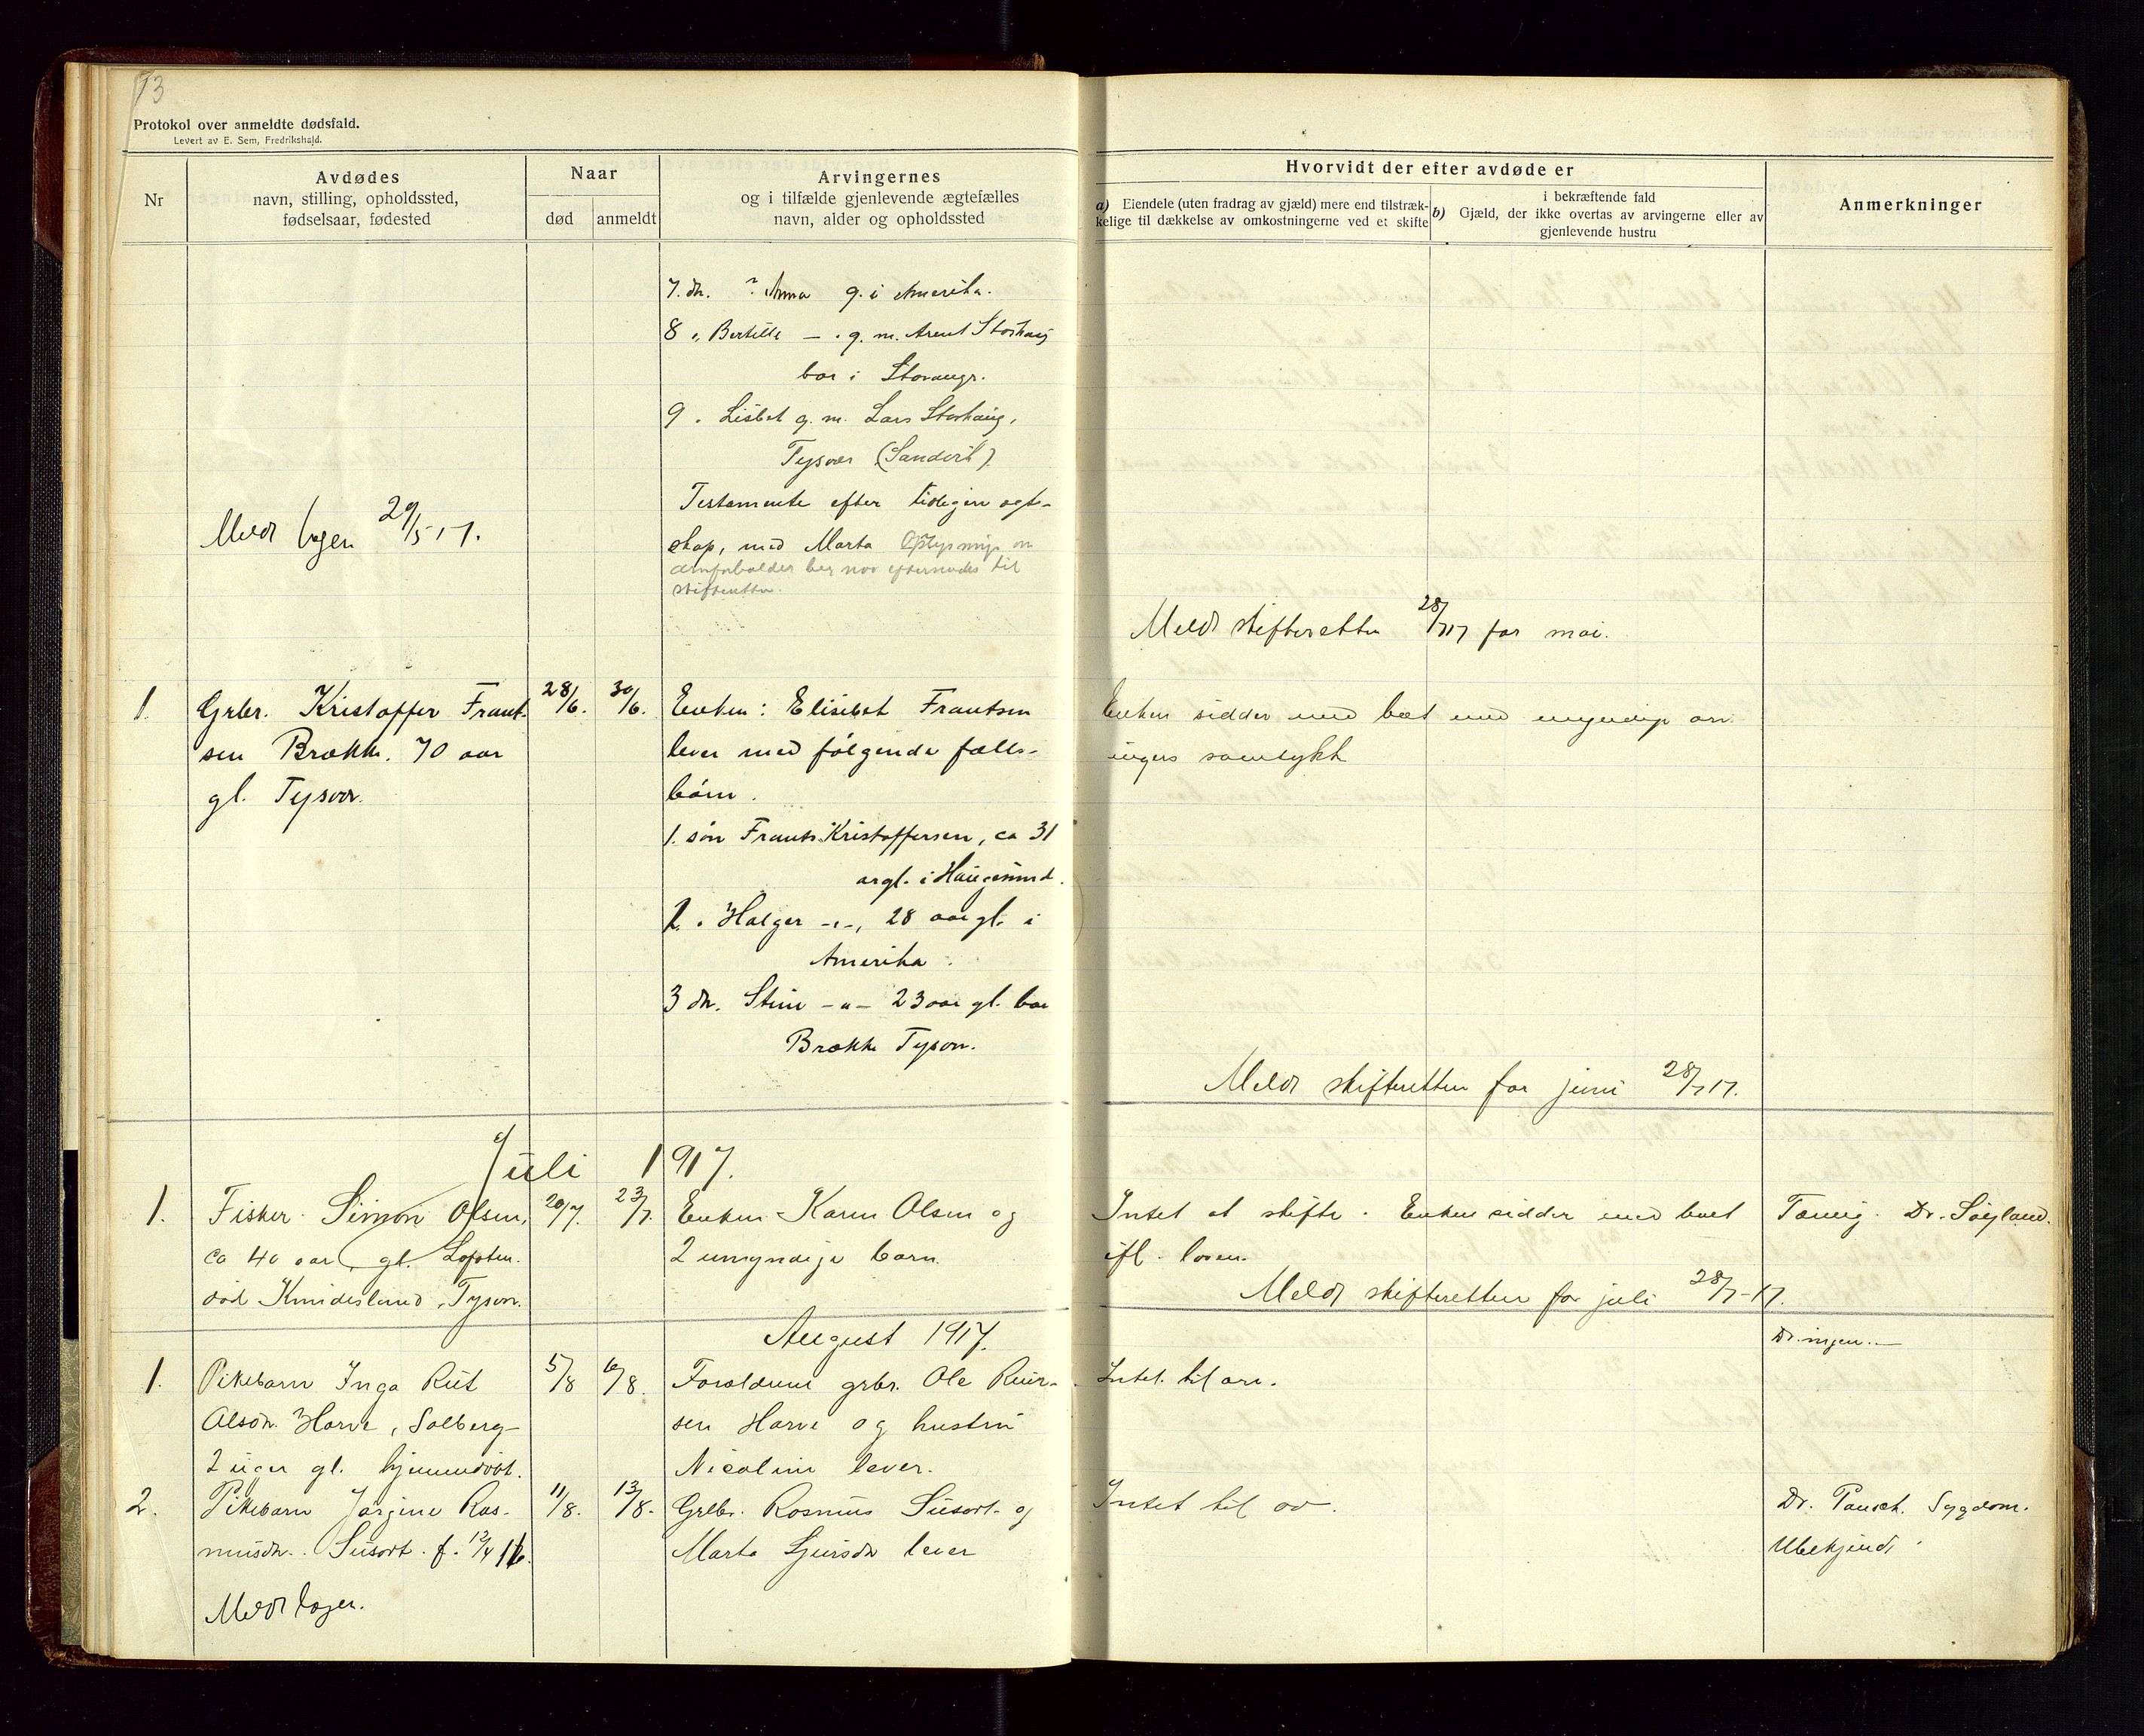 13
Protokol over anmeldte dødsfald.
Levert av E. Sem, Fredrikshald.
Nr
Avdødes
navn, stilling, opholdssted,
fødselsaar, fødested
Naar
død
anmeldt
Arvingernes
og i tilfælde gjenlevende ægtefælles
navn, alder og opholdssted
Hvorvidt der efter avdøde er
a) Eiendele (uten fradrag av gjæld) mere end tilstræk-
kelige til dækkelse av omkostningerne ved et skifte
i bekræftende fald
b) Gjæld, der ikke overtas av arvingerne eller av
gjenlevende hustru
Anmerkninger
7. dr. ? Anna g. i Amerika.
8 " Bertille — . g. m. Arent Storhaug
bor i Stavangr.
9 . Lisbet g. m. Lars Storhaug,
Tysvær (Sandvik)
Testamente efter tidligere ægt-
skap, med Marta
skifteretten.
Meldt 29/5 17.
Meldt skifteretten 28/7 17 for mai.
1. Grbr. Kristoffer Frant-
sen Brække. 70 aar
gl. Tysvær.
28/6. 30/6.
Enken: Elisebet Frantsen
lever med følgende fælls-
børn.
1. søn Frants Kristoffersen, ca 31
argl. i Haugesund.
2. " Holger -"-, 28 aar gl. i
Amerika.
3 dr. Stine -"- 23 aar gl. bor
Brække Tysvær.
Enken sidder med boet med myndige arv
ingers samtykke
Meldt skifteretten for juni 28/7 17.
Juli 1917.
1. Fisker Simon Olsen,
ca 40 aar gl. Lofoten.
død Tysvær.
20/7. 23/7.
Enken Karen Olsen og
2 umyndige barn.
Intet at skifte. Enken sidder med boet
ifl. loven.
Dr. Søyland.
Meldt skifteretten for juli 28/7-17.
August 1917.
Dr. ingen.—
1. Pikebarn Inga Rut
Olsdr. Harve, Solberg-
2 uger gl. hjemmedøbt.
5/8 6/8.
Forældrene grbr. Ole
sen Harve og hustru
Nicoline lever.
Intet til arv.
2. Pikebarn Jørgine Ras-
musdr. Susort. f. 12/4 16.
11/8. 13/8.
Grbr. Rasmus Susort og
Marta Sjursdr lever
Intet til arv.
Dr. Pausch. Sygdom.
Ubekjendt.
Meldt